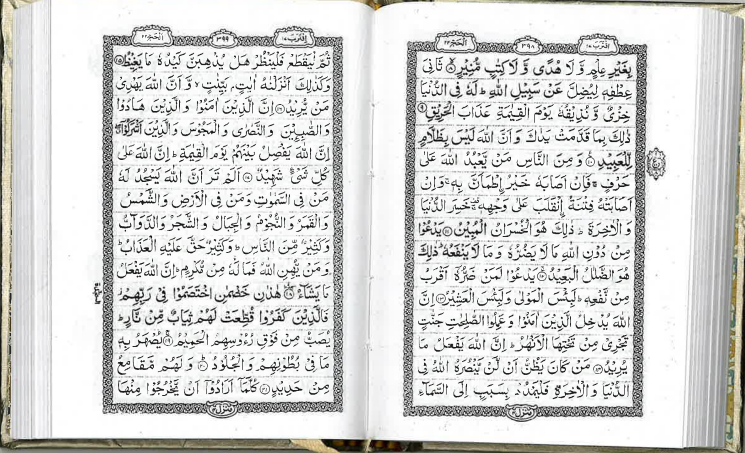 اِقْتَرَبَ ١٧ ٣٩٨ اَلْحَجّ ٢٢
بِغَيْرِ عِلْمٍ وَّ لَا هُدًى وَّ لَا كِتٰبٍ مُّنِيْرٍ ۙ‏٨ ثَانِیَ
عِطْفِهٖ لِيُضِلَّ عَنْ سَبِيْلِ اللّٰهِ ؕ لَهٗ فِی الدُّنْيَا
خِزْیٌ وَّ نُذِيْقُهٗ يَوْمَ الْقِيٰمَةِ عَذَابَ الْحَرِيْقِ ٩
ذٰلِكَ بِمَا قَدَّمَتْ يَدٰكَ وَ اَنَّ اللّٰهَ لَيْسَ بِظَلَّامٍ
لِّلْعَبِيْدِ ١٠ وَ مِنَ النَّاسِ مَنْ يَّعْبُدُ اللّٰهَ عَلٰی
حَرْفٍ ۚ فَاِنْ اَصَابَهٗ خَيْرُ ۨاطْمَاَنَّ بِهٖ ۚ وَ اِنْ
اَصَابَتْهُ فِتْنَةُ ۨانْقَلَبَ عَلٰی وَجْهِهٖ ۚ خَسِرَ الدُّنْيَا
وَ الْاٰخِرَةَ ؕ ذٰلِكَ هُوَ الْخُسْرَانُ الْمُبِيْنُ ١١ يَدْعُوْا
مِنْ دُوْنِ اللّٰهِ مَا لَا يَضُرُّهٗ وَ مَا لَا يَنْفَعُهٗ ؕ ذٰلِكَ
هُوَ الضَّلٰلُ الْبَعِيْدُ ١٢ يَدْعُوْا لَمَنْ ضَرُّهٗٓ اَقْرَبُ
مِنْ نَّفْعِهٖ ؕ لَبِئْسَ الْمَوْلٰی وَ لَبِئْسَ الْعَشِيْرُ ١٣ اِنَّ
اللّٰهَ يُدْخِلُ الَّذِيْنَ اٰمَنُوْا وَ عَمِلُوا الصّٰلِحٰتِ جَنّٰتٍ
تَجْرِیْ مِنْ تَحْتِهَا الْاَنْهٰرُ ؕ اِنَّ اللّٰهَ يَفْعَلُ مَا
يُرِيْدُ ١٤ مَنْ كَانَ يَظُنُّ اَنْ لَّنْ يَّنْصُرَهُ اللّٰهُ فِی
الدُّنْيَا وَ الْاٰخِرَةِ فَلْيَمْدُدْ بِسَبَبٍ اِلَی السَّمَآءِ
منزل ٤
اِقْتَرَبَ ١٧ ٣٩٩ اَلْحَجّ ٢٢
ثُمَّ لْيَقْطَعْ فَلْيَنْظُرْ هَلْ يُذْهِبَنَّ كَيْدُهٗ مَا يَغِيْظُ ١٥
وَ كَذٰلِكَ اَنْزَلْنٰهُ اٰيٰتٍۭ بَيِّنٰتٍ ۙ وَّ اَنَّ اللّٰهَ يَهْدِیْ
مَنْ يُّرِيْدُ ١٦ اِنَّ الَّذِيْنَ اٰمَنُوْا وَ الَّذِيْنَ هَادُوْا
وَ الصّٰبِـِٕيْنَ وَ النَّصٰرٰی وَ الْمَجُوْسَ وَ الَّذِيْنَ اَشْرَكُوْۤا ۖ
اِنَّ اللّٰهَ يَفْصِلُ بَيْنَهُمْ يَوْمَ الْقِيٰمَةِ ؕ اِنَّ اللّٰهَ عَلٰی
كُلِّ شَیْءٍ شَهِيْدٌ ١٧ اَلَمْ تَرَ اَنَّ اللّٰهَ يَسْجُدُ لَهٗ
مَنْ فِی السَّمٰوٰتِ وَ مَنْ فِی الْاَرْضِ وَ الشَّمْسُ
وَ الْقَمَرُ وَ النُّجُوْمُ وَ الْجِبَالُ وَ الشَّجَرُ وَ الدَّوَآبُّ
وَ كَثِيْرٌ مِّنَ النَّاسِ ؕ وَ كَثِيْرٌ حَقَّ عَلَيْهِ الْعَذَابُ ؕ
وَ مَنْ يُّهِنِ اللّٰهُ فَمَا لَهٗ مِنْ مُّكْرِمٍ ؕ اِنَّ اللّٰهَ يَفْعَلُ
مَا يَشَآءُ ١٨ هٰذٰنِ خَصْمٰنِ اخْتَصَمُوْا فِیْ رَبِّهِمْ ؗ
فَالَّذِيْنَ كَفَرُوْا قُطِّعَتْ لَهُمْ ثِيَابٌ مِّنْ نَّارٍ ؕ
يُصَبُّ مِنْ فَوْقِ رُءُوْسِهِمُ الْحَمِيْمُ ١٩ يُصْهَرُ بِهٖ
مَا فِیْ بُطُوْنِهِمْ وَ الْجُلُوْدُ ٢٠ وَ لَهُمْ مَّقَامِعُ
مِنْ حَدِيْدٍ ٢١ كُلَّمَاۤ اَرَادُوْۤا اَنْ يَّخْرُجُوْا مِنْهَا
منزل ٤